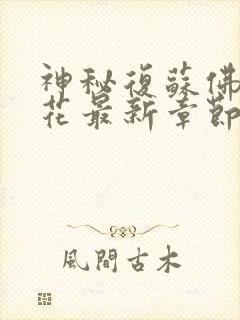 神秘復蘇佛
花最新章節
風間古木